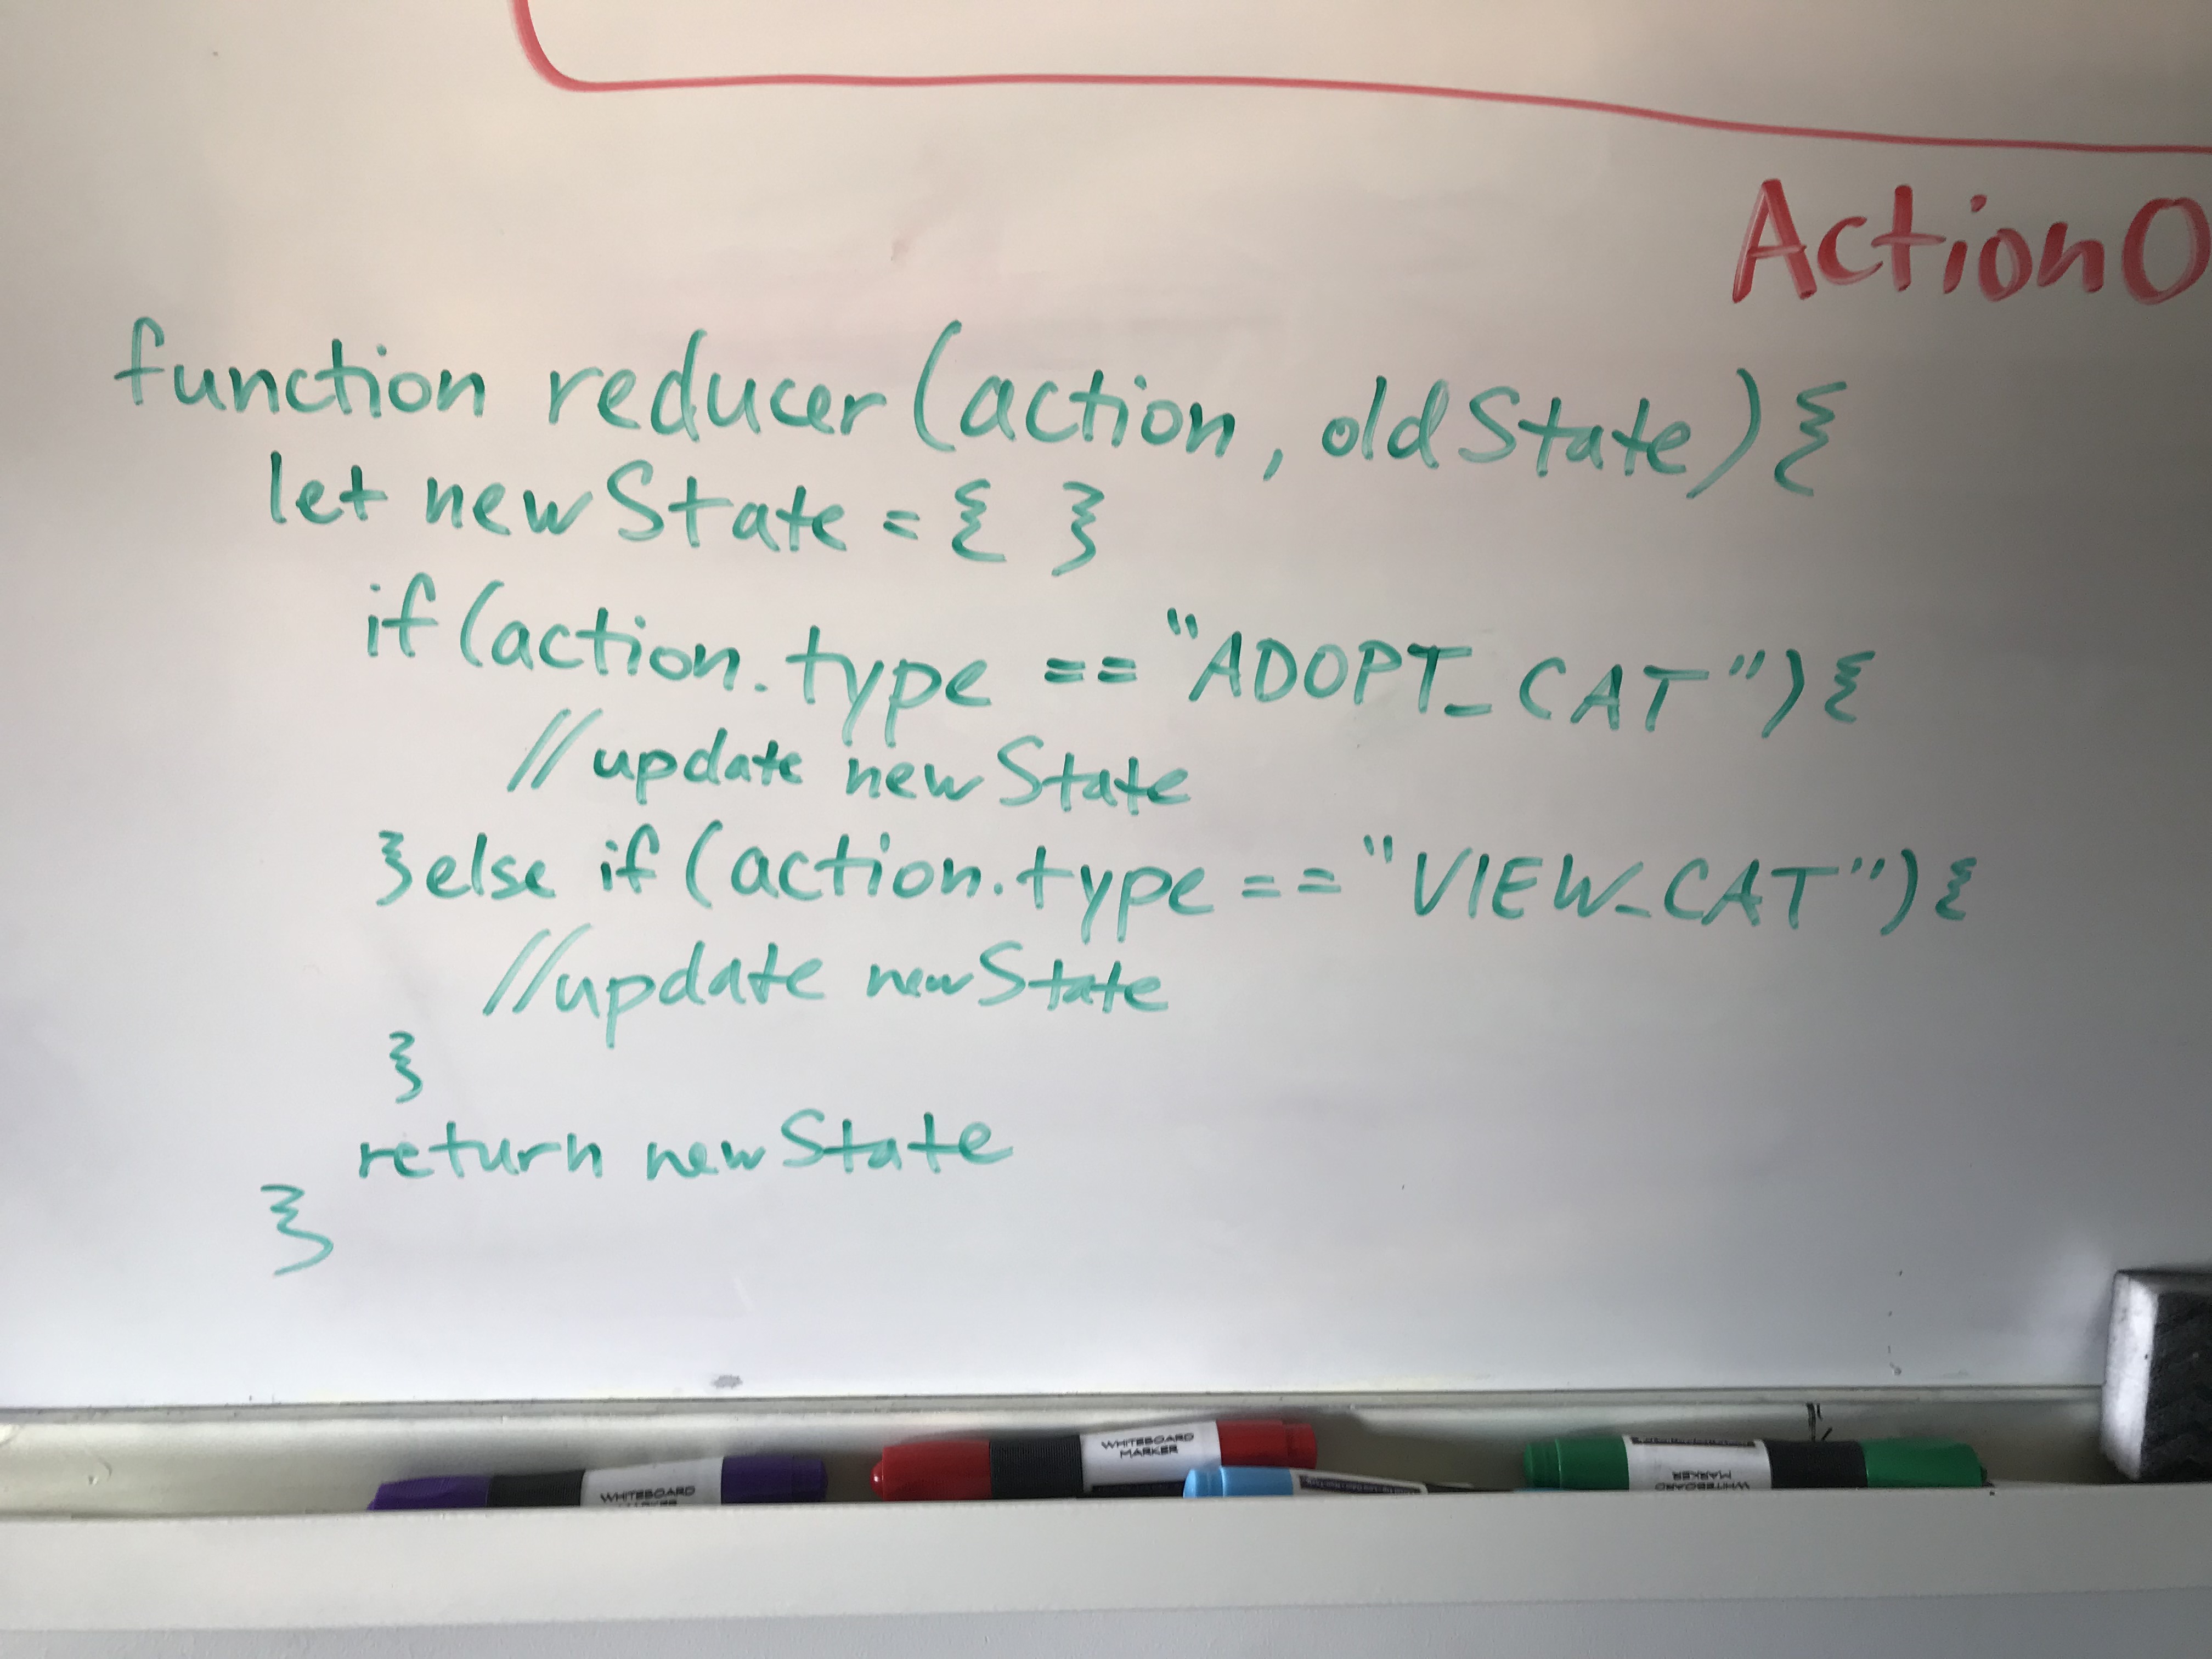 ActionO
function reducer(action, oldState){
let newState = { }
if(action.type == "ADOPT_CAT"){
//update newState
}else if(action.type == "VIEW_CAT"){
//update newState
}
return newState
}
WHITEBOARD
MARKER
WHITEBOARD
MARKER
WHITEBOARD
MARKER